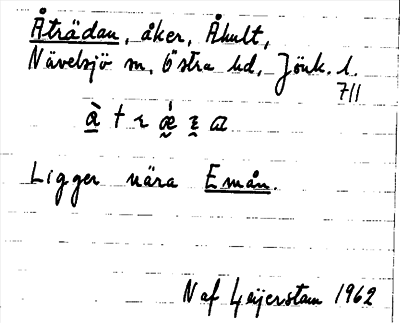 Åträdan, åker, Åhult,
Nävelsjö sn, Östra hd, Jönk. l.
711
Ligger nära Emån.
N af Geijerstam 1962